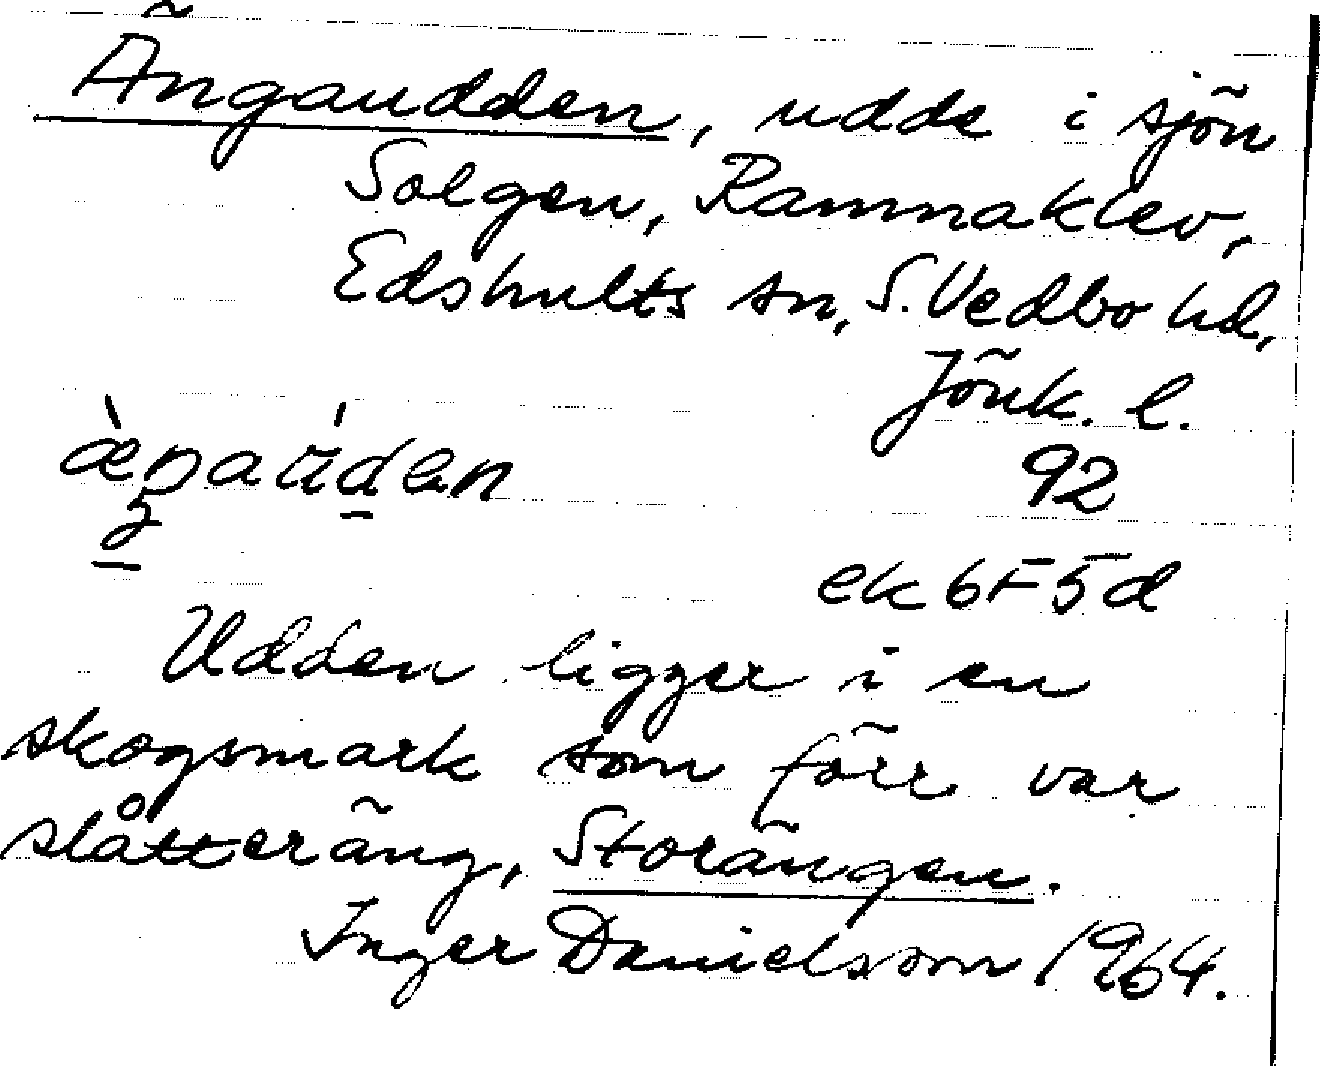 Ängaudden, udde i sjön
Solgen, Ramnaklev,
Edshults sn, S. Vedbo hd,
Jönk. l.
æ̀ŋaúd̲en
92
ek 6F5d
Udden ligger i en
skogsmark som förr var
slåtteräng, Storängen.
Inger Danielsson 1964.